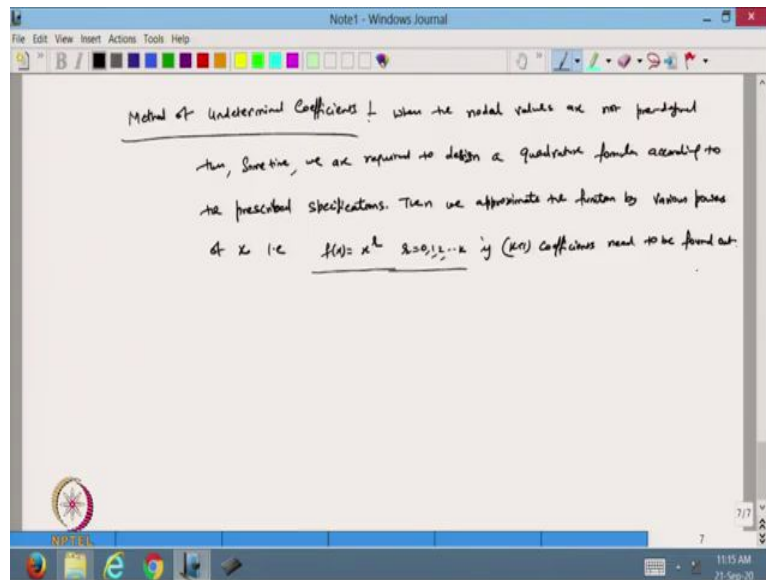 Note1 - Windows Journal
File Edit View Insert Actions Tools Help
B I
Method of Undetermined Coefficients :- when the nodal values are not predefined
then, Sometime, we are required to design a quadrature formula according to
the prescribed specifications. Then we approximate the function by various powers
of x i.e f(x) = x^r r=0,1,2...k if (k+1) coefficients need to be found out.
NPTEL
7/7
7
11:15 AM
21-Sep-20